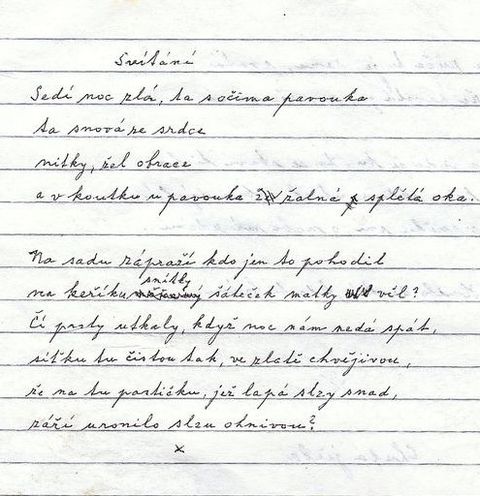 Svítání
Sedí noc zlá, ta s očima pavouka
ta snová ze srdce
nitky, žel obrace
a v koutku u pavouka žalná splétá oka.
Na sadu zápraží kdo jen to pohodil
snítky
na keříku šáteček matky věl?
Čí prsty utkaly, když noc nám nedá spát,
síťku tu čistou tak, ve zlatě chvějivou,
že na tu pastičku, jež lapá slzy snad,
září uronilo slzu ohnivou?
x